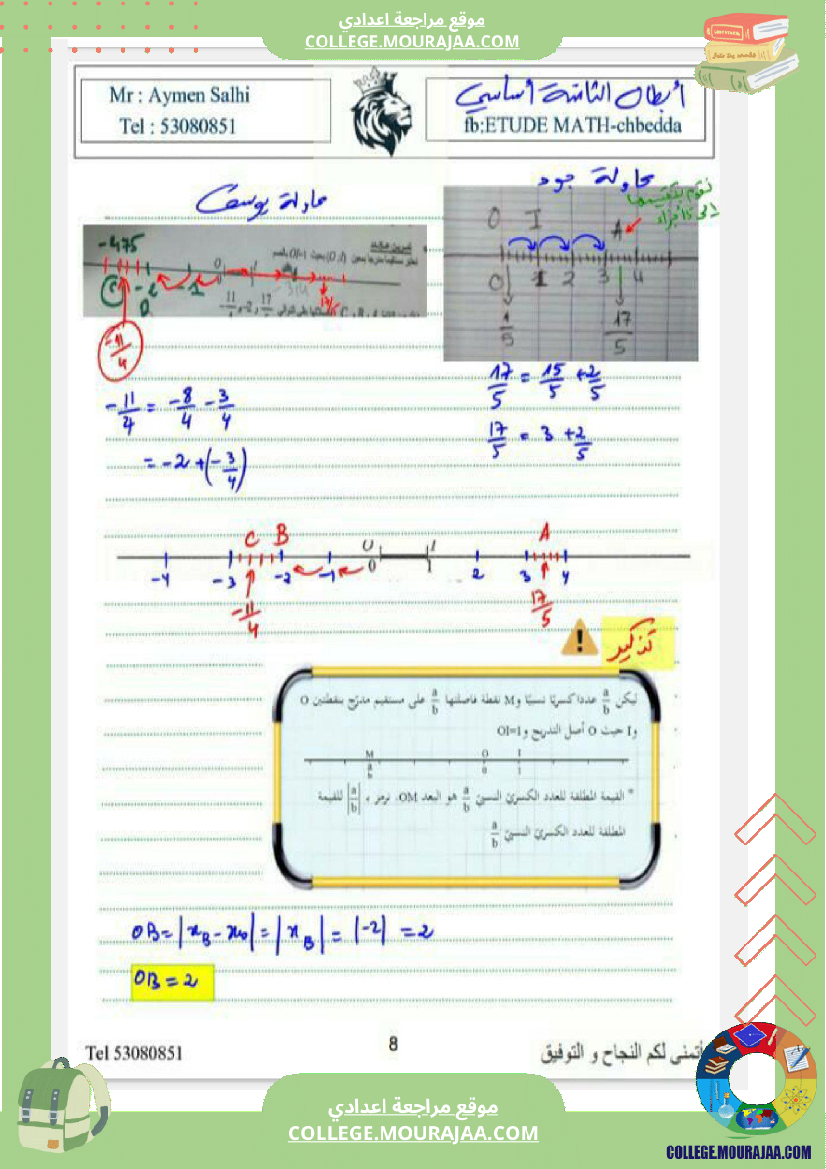 موقع مراجعة اعدادي
COLLEGE.MOURAJAA.COM
Mr : Aymen Salhi
Tel : 53080851
أبطال الثامنة أساسي
fb:ETUDE MATH-chbedda
محاولة يوسف
محاولة جود
نقوم بتقسيمها
إلى 5 أجزاء
-475
-2 -1 0
17/5
-11/4
O I A
0 1 2 3 4
1/5 17/5
-11/4 = -8/4 - 3/4
= -2 + (-3/4)
17/5 = 15/5 + 2/5
17/5 = 3 + 2/5
C B O I A
-4 -3 -2 -1 0 1 2 3 4
-11/4 17/5
تذكير
ليكن a/b عددا كسريًا نسبيًا و M نقطة فاصلتها a/b على مستقيم مدرّج بنقطتين O
و I حيث O أصل التدريج و OI=1
M O I
a/b 0 1
* القيمة المطلقة للعدد الكسريّ النسبيّ a/b هو البعد OM. نرمز بـ |a/b| للقيمة
المطلقة للعدد الكسريّ النسبيّ a/b
OB = |xB - xO| = |xB| = |-2| = 2
OB = 2
Tel 53080851
8
أتمنى لكم النجاح و التوفيق
موقع مراجعة اعدادي
COLLEGE.MOURAJAA.COM
COLLEGE.MOURAJAA.COM